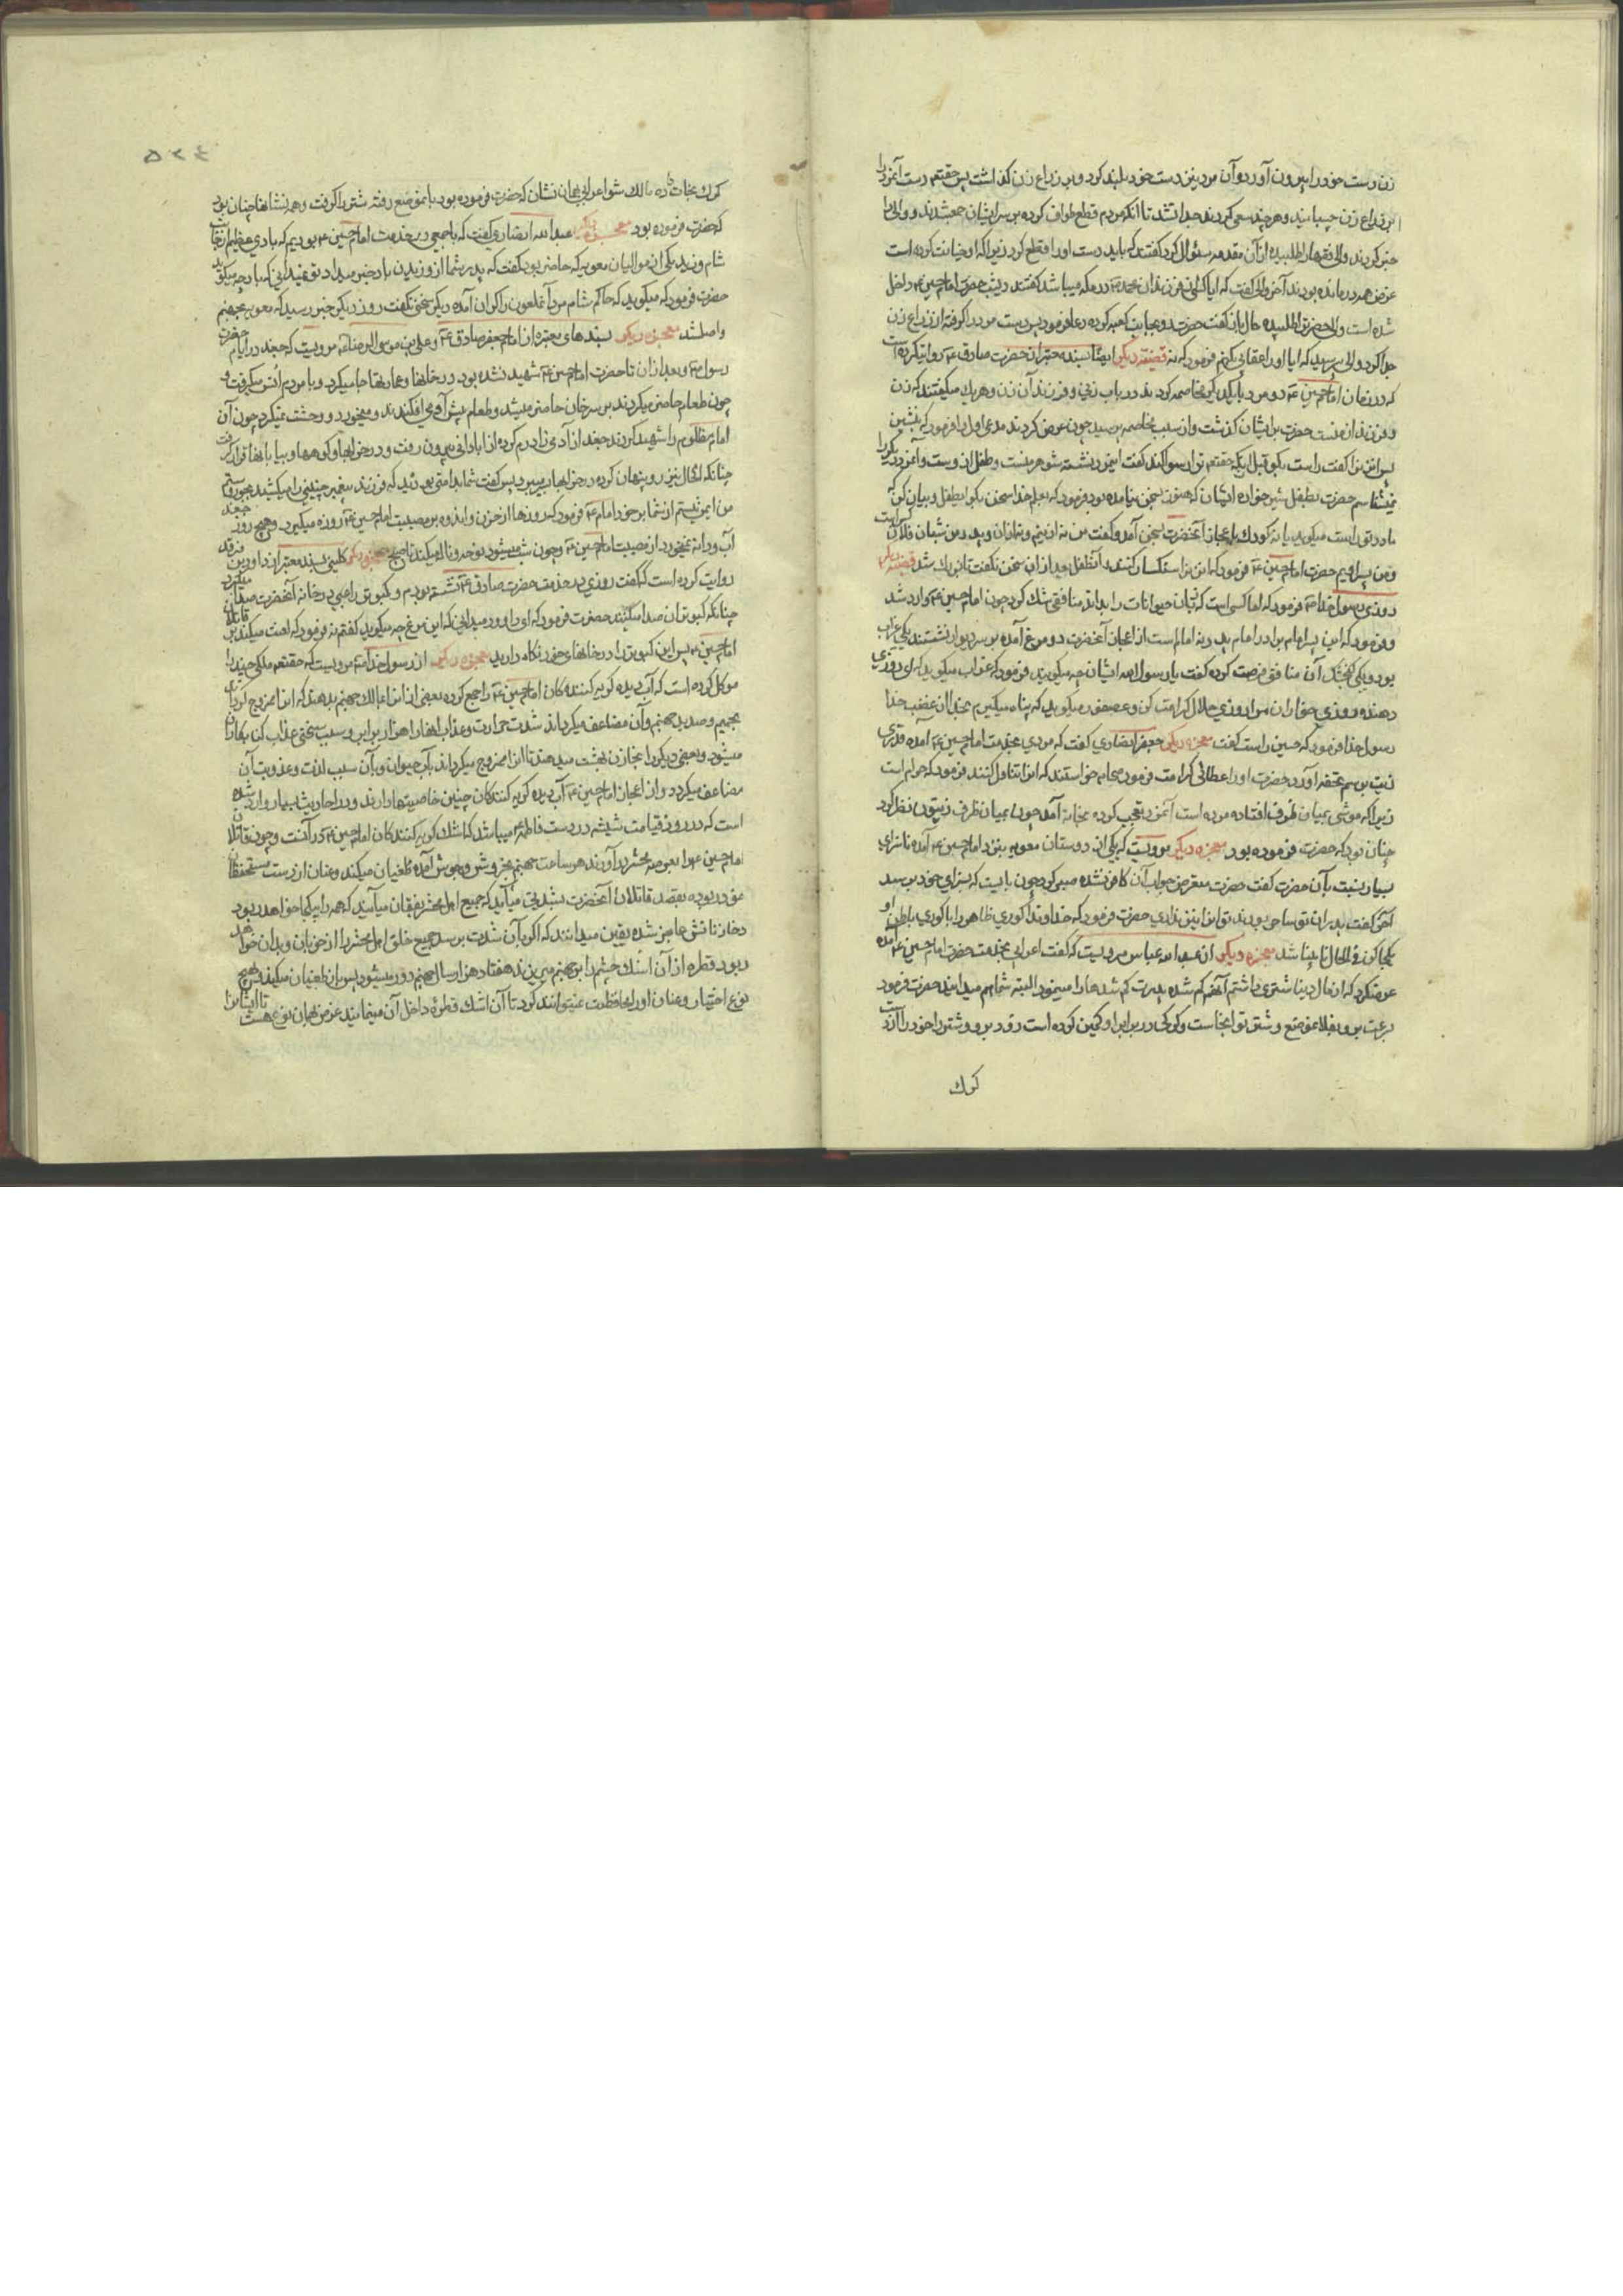 زن دست خود را بیرون آورد و آن مرد نیز دست خود بلند کرد و بر ذراع زن گذاشت پس حقتعالی دست آنمرد را
بر ذراع زن چسبانید و هر چند سعی کردند جدا نشد تا آنکه مردم قطع طواف کرده بر سر ایشان جمع شدند و والی را
خبر کردند والی فقها را طلبیده از آن مقدمه سئوال کرد گفتند که باید دست او را قطع کرد زیرا که او خیانت کرده است
غرض همه درمانده بودند آخر والی گفت که آیا کسی از فرزندان محمد ص در مکه میباشد گفتند دیشب حضرت امام حسین ع داخل
شده است والی حضرت را طلبیده حال باز گفت حضرت رو بجانب کعبه کرده دعا فرمود پس دست مرد را گرفته از ذراع زن
جدا کرد والی پرسید که آیا او را عقابی بکنم فرمود که نه قضیه دیگر ایضا بسند معتبر از حضرت صادق ع روایتکرده است
که در زمان امام حسین ع دو مرد با یکدیگر مخاصمه کردند در باب زنی و فرزند آن زن و هر یک میگفتند که زن
و فرزند از منست حضرت بر ایشان گذشت و از سبب مخاصمه پرسید چون عرض کردند مدعی اول را فرمود که بنشین
پس این زن را گفت راست بگو قبل از آنکه حقتعالی ترا رسوا کند گفت این مرد نشسته شوهر منست و طفل از اوست و آنمرد دیگر را
نمیشناسم حضرت بطفل شیر خواره ایشان که هنوز بسخن نیامده بود فرمود که بعلم خدا سخن بگو ای طفل و بیان کن که
مادر تو راست میگوید یا نه کودک باعجاز آنحضرت بسخن آمد و گفت من نه از اینم و نه از آن و پدر من شبان فلان است
و من پسر اویم حضرت امام حسین ع فرمود که این زن را سنگسار کنند و آنطفل بعد از آن سخن نگفت تا بزرگ شد قضیه دیگر
روزی رسول خدا ص فرمود که امام کسی است که زبان حیوانات را بداند منافقی شک کرد چون امام حسین ع وارد شد
و فرمود که این پسر امام برادر امام پدر نه امام است از اعجاز آنحضرت دو مرغ آمده بر سر دیوار نشستند یکی غراب
بود و یکی گنجشک آن منافق فرصت کرده گفت یا رسول الله ایشان چه میگویند فرمود که غراب میگوید که ای روزی
دهنده روزی خواران مرا روزی حلال کرامت کن و عصفور میگوید که پناه میگیرم بخدا از غضب خدا
رسول خدا فرمود که حسین راست گفت معجزه دیگر جعفر انصاری گفت که مردی بخدمت امام حسین ع آمده قدری
زیت برسم تحفه آورد حضرت او را عطائی کرامت فرمود صحابه خواستند که از آن تناول کنند فرمود که حرام است
زیرا که موشی بمیان ظرف افتاده مرده است آنمرد تعجب کرده بخانه آمد چون بمیان ظرف زیتون نظر کرد
چنان بود که حضرت فرموده بود معجزه دیگر مرویست که یکی از دوستان معویه بنزد امام حسین ع آمده ناسزای
بسیار نسبت بآن حضرت گفت حضرت متعرض جواب آن کافر نشده صبر کرد چون بایست که بسزای خود برسد
آخر گفت پدران تو ساحر بودند تو از این نیز نداری حضرت فرمود که خداوندا کوری ظاهر او را با کوری باطن او
یکجا کن فی الحال نابینا شد معجزه دیگر از عبد الله عباس مرویست که گفت اعرابی بخدمت حضرت امام حسین ع آمده
عرضکرد که از مال دنیا شتری داشتم آنهم گم شده پدرت گم شدها را مینمود البته شما هم میدانید حضرت فرمود
برو بفلان موضع و شتر تو آنجاست و گرگی در برابر او کمین کرده است زود برو و شتر را خود را آزاد
گرگ
۵۲۴
گرگ نجات ده مالک شو اعرابی بهمان نشان که حضرت فرموده بود بآن موضع رفته شتر را گرفت و همه نشانها چنان بود
که حضرت فرموده بود معجزه دیگر عبد الله انصاری گفت که با جمعی در خدمت امام حسین ع بودیم که بادی عظیم از جانب
شام وزید یکی از موالیان معویه که حاضر بود گفت که پدر شما از وزیدن باد خبر میداد تو نمیدانی که باد چه میگوید
حضرت فرمود که میگوید که حاکم شام مرد آنملعون را گران آمده دیگر سخن نگفت روز دیگر خبر رسید که معویه بجهنم
واصلشد معجزه دیگر بسندهای معتبره از امام جعفر صادق ع و علی بن موسی الرضا ع مرویست که جغد در ایام حضرت
رسول ص و بعد از آن تا حضرت امام حسین ع شهید نشده بود در خانها و عمارتها جا میکرد و با مردم انس میگرفت و
چون طعام حاضر میکردند بر سر خوان حاضر میشد و طعام پیش او می افکندند و میخورد و وحشت نمیکرد چون آن
امام مظلوم را شهید کردند جغد از آدمی زاد رم کرده از آبادانی بیرون رفت و در خرابها و کوهها و بیابانها قرار گرفت
چنانکه الحال نیز رو پنهان کرده در خرابها بسر میبرد پس گفت شما بد امتی بودید که فرزند پیغمبر چنینی را میکشید
من ایمن نیستم از شما بر خود امام ع فرمود که روزها از حزن و اندوه بر مصیبت امام حسین ع روزه میگیرد و هیچ روز
آب و دانه نمیخورد از مصیبت امام حسین ع و چون شب میشود نوحه و ناله میکند تا صبح معجزه دیگر کلینی بسند معتبر از داود بن فرقد
روایت کرده است که گفت روزی در خدمت حضرت صادق ع نشسته بودم و کبوتر راعبی در خانه آنحضرت صدا میکرد
چنانکه کبوتران صدا میکنند حضرت فرمود که ای داود میدانی که این مرغ چه میگوید گفتم نه فرمود که لعنت میکند بر قاتلان
امام حسین ع پس این کبوتر را در خانهای خود نگاه دارید معجزه دیگر از رسول خدا ص مرویست که حقتعالی ملکی چند را
موکل کرده است که آب دیده گریه کنندگان امام حسین ع را جمع کرده بعضی از آن را بمالک جهنم بدهند که آن را ممزوج گرداند
بحمیم و صدید جهنم و آن مضاعف میگرداند شدت حرارت و عذاب آنها را هزار برابر و سبب سختی عذاب
میشود و بعضی دیگر را بخازن بهشت میدهند تا آنرا ممزوج میگرداند بآب حیوان و بآن سبب لذت و عذوبت آن
مضاعف میگردد و از اعجاز امام حسین ع آب دیده گریه کنندگان چنین خاصیتها دارند و در احادیث بسیار وارد شده
است که در روز قیامت شیشه در دست فاطمه ع میباشد که اشک گریه کنندگان امام حسین ع در آنست و چون قاتلان
امام حسین ع را بعرصه محشر در آورند هر ساعت جهنم بخروش و جوش آمده طغیان میکند و عنان از دست مستحفظان
خود ربوده بقصد قاتلان آنحضرت بشدتی میآید که جمیع اهل محشر بفغان میآیند که همه را یکجا خواهد ربود
و خازنانش عاجز شده یقین میدانند که اگر بآن شدت برسد جمیع خلق اهل محشر را از خوبان و بدان خواهد
ربود قطره از آن اشک چشم را بر جهنم میریزند هفتاد هزار سال جهنم دور میشود پس باز طغیان میکند و هیچ
نوع اختیار و عنان او را محافظت نمیتوانند کرد تا آن اشک قطره داخل آن مینمایند غرض بهمان نوع هست تا ایشان را